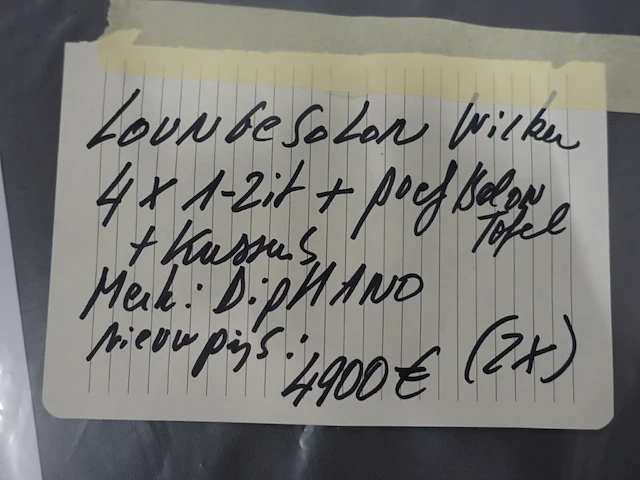 Loungesalon Wicker
4 x 1-Zit + poef Salon
Tafel
+ Kussens
Merk: DipHANO
nieuwprijs:
4900 € (2x)